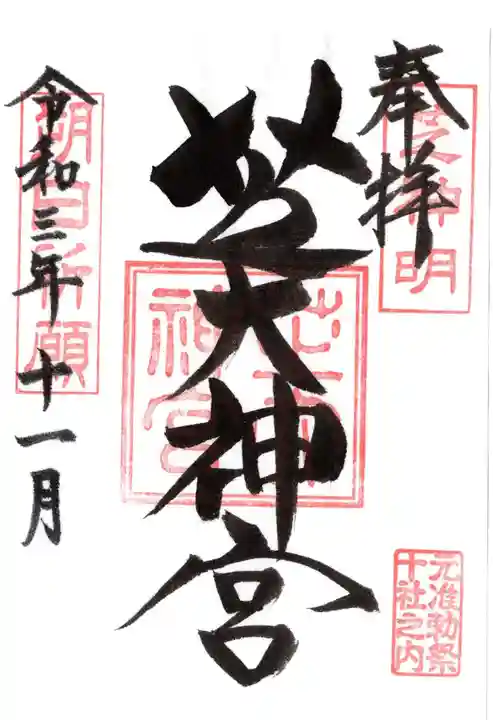 奉拝
芝之神明
芝大神宮
芝大神宮
令和三年十一月
朔日祈願
元准勅祭
十社之内